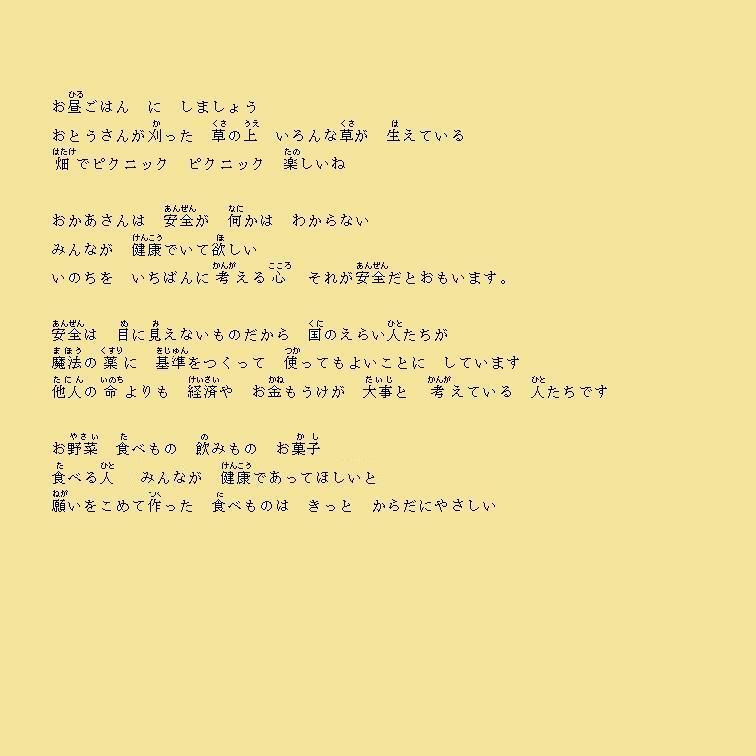 お昼ごはん　に　しましょう
おとうさんが刈った　草の上　いろんな草が　生えている
畑でピクニック　ピクニック　楽しいね
おかあさんは　安全が　何かは　わからない
みんなが　健康でいて欲しい
いのちを　いちばんに考える心　それが安全だとおもいます。
安全は　目に見えないものだから　国のえらい人たちが
魔法の薬に　基準をつくって　使ってもよいことに　しています
他人の命よりも　経済や　お金もうけが　大事と　考えている　人たちです
お野菜　食べもの　飲みもの　お菓子
食べる人　みんなが　健康であってほしいと
願いをこめて作った　食べものは　きっと　からだにやさしい